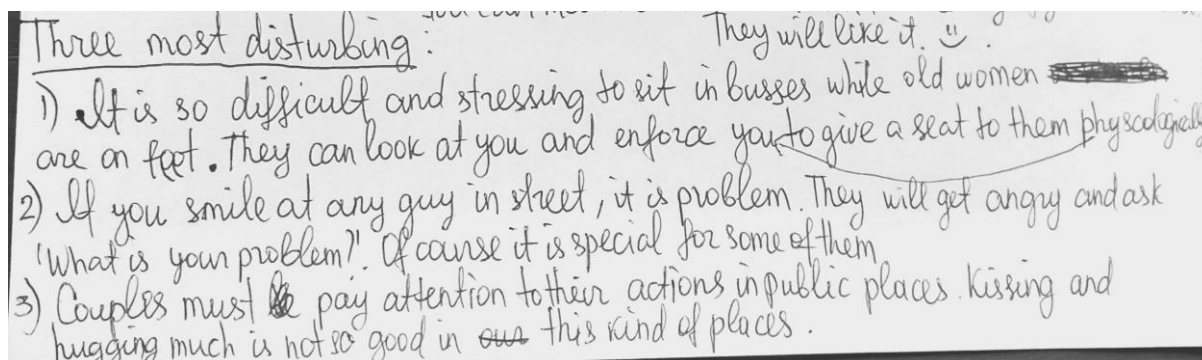 Three most disturbing:
They will like it. ☺.
1) It is so difficult and stressing to sit in busses while old women
are on feet. They can look at you and enforce you to give a seat to them physcologically
2) If you smile at any guy in street, it is problem. They will get angry and ask
'What is your problem?'. Of course it is special for some of them
3) Couples must pay attention to their actions in public places. Kissing and
hugging much is not so good in our this kind of places.